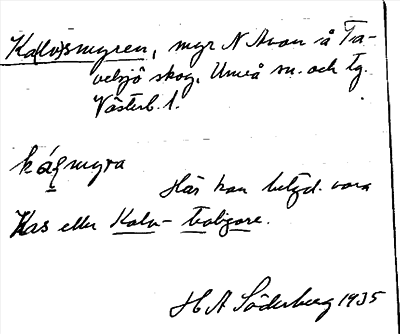 Ka(lv)smyren, myr N Avan å Ta-
velsjö skog, Umeå sn. och tg.
Västerb. l.
kásmyra
Här kan betyd. vara
Kas eller Kalv-
H A Söderberg 1935